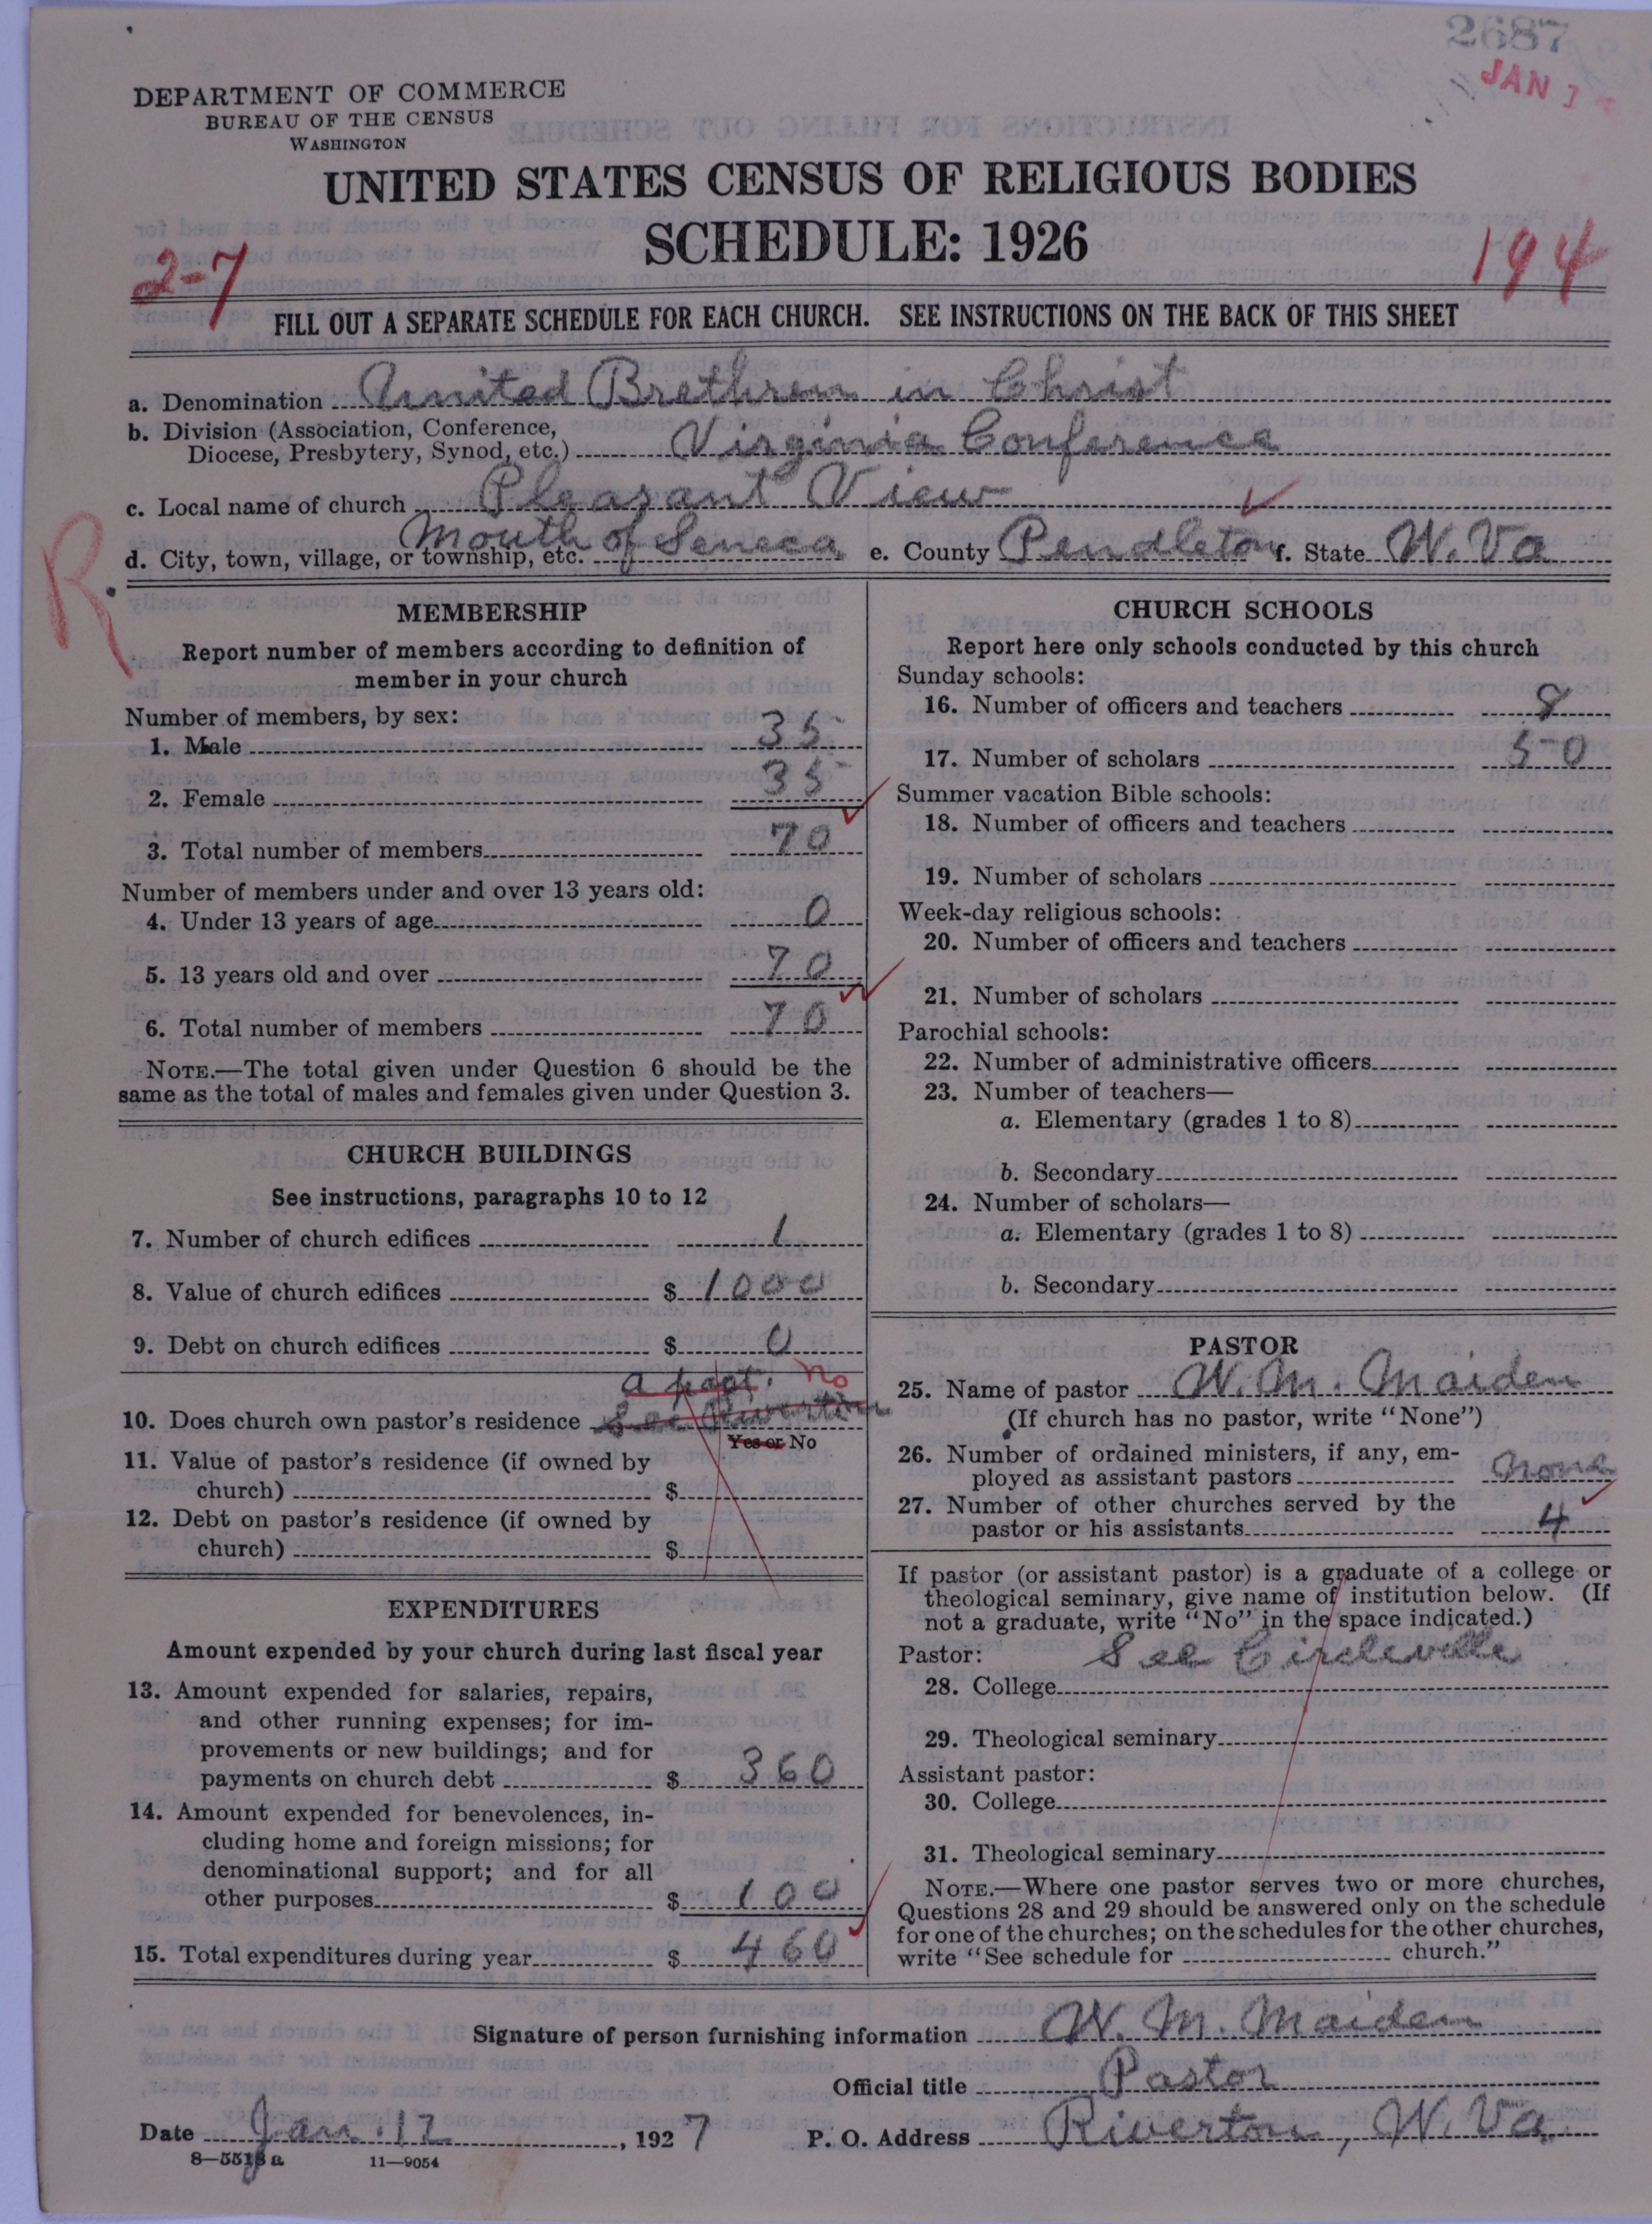 2687
JAN 1
DEPARTMENT OF COMMERCE
BUREAU OF THE CENSUS
WASHINGTON
UNITED STATES CENSUS OF RELIGIOUS BODIES
SCHEDULE: 1926
2-7
194
FILL OUT A SEPARATE SCHEDULE FOR EACH CHURCH. SEE INSTRUCTIONS ON THE BACK OF THIS SHEET
a. Denomination United Brethren in Christ
b. Division (Association, Conference,
Diocese, Presbytery, Synod, etc.) Virginia Conference
c. Local name of church Pleasant View
d. City, town, village, or township, etc. Mouth of Seneca e. County Pendleton f. State W. Va
R.
MEMBERSHIP
Report number of members according to definition of
member in your church
Number of members, by sex:
1. Male 35
2. Female 35
3. Total number of members 70
Number of members under and over 13 years old:
4. Under 13 years of age 0
5. 13 years old and over 70
6. Total number of members 70
NOTE.—The total given under Question 6 should be the
same as the total of males and females given under Question 3.
CHURCH BUILDINGS
See instructions, paragraphs 10 to 12
7. Number of church edifices 1
8. Value of church edifices $ 1000
9. Debt on church edifices $ 0
a part. no
10. Does church own pastor's residence See Riverton
Yes or No
11. Value of pastor's residence (if owned by
church) $
12. Debt on pastor's residence (if owned by
church) $
EXPENDITURES
Amount expended by your church during last fiscal year
13. Amount expended for salaries, repairs,
and other running expenses; for im-
provements or new buildings; and for
payments on church debt $ 360
14. Amount expended for benevolences, in-
cluding home and foreign missions; for
denominational support; and for all
other purposes $ 100
15. Total expenditures during year $ 460
CHURCH SCHOOLS
Report here only schools conducted by this church
Sunday schools:
16. Number of officers and teachers 8
17. Number of scholars 50
Summer vacation Bible schools:
18. Number of officers and teachers
19. Number of scholars
Week-day religious schools:
20. Number of officers and teachers
21. Number of scholars
Parochial schools:
22. Number of administrative officers
23. Number of teachers—
a. Elementary (grades 1 to 8)
b. Secondary
24. Number of scholars—
a. Elementary (grades 1 to 8)
b. Secondary
PASTOR
25. Name of pastor W. M. Maiden
(If church has no pastor, write "None")
26. Number of ordained ministers, if any, em-
ployed as assistant pastors none
27. Number of other churches served by the
pastor or his assistants 4
If pastor (or assistant pastor) is a graduate of a college or
theological seminary, give name of institution below. (If
not a graduate, write "No" in the space indicated.)
Pastor: See Circleville
28. College
29. Theological seminary
Assistant pastor:
30. College
31. Theological seminary
NOTE.—Where one pastor serves two or more churches,
Questions 28 and 29 should be answered only on the schedule
for one of the churches; on the schedules for the other churches,
write "See schedule for church."
Signature of person furnishing information W. M. Maiden
Official title Pastor
Date Jan. 12, 1927 P. O. Address Riverton, W. Va.
8—5518 a 11—9054